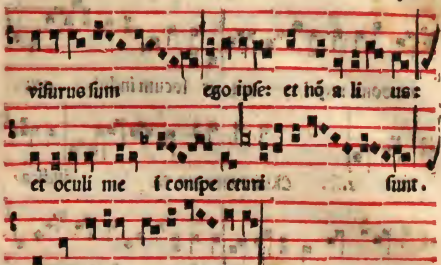 visurus sum ego ipse: et nõ a li us:
et oculi me i conspe cturi sunt.